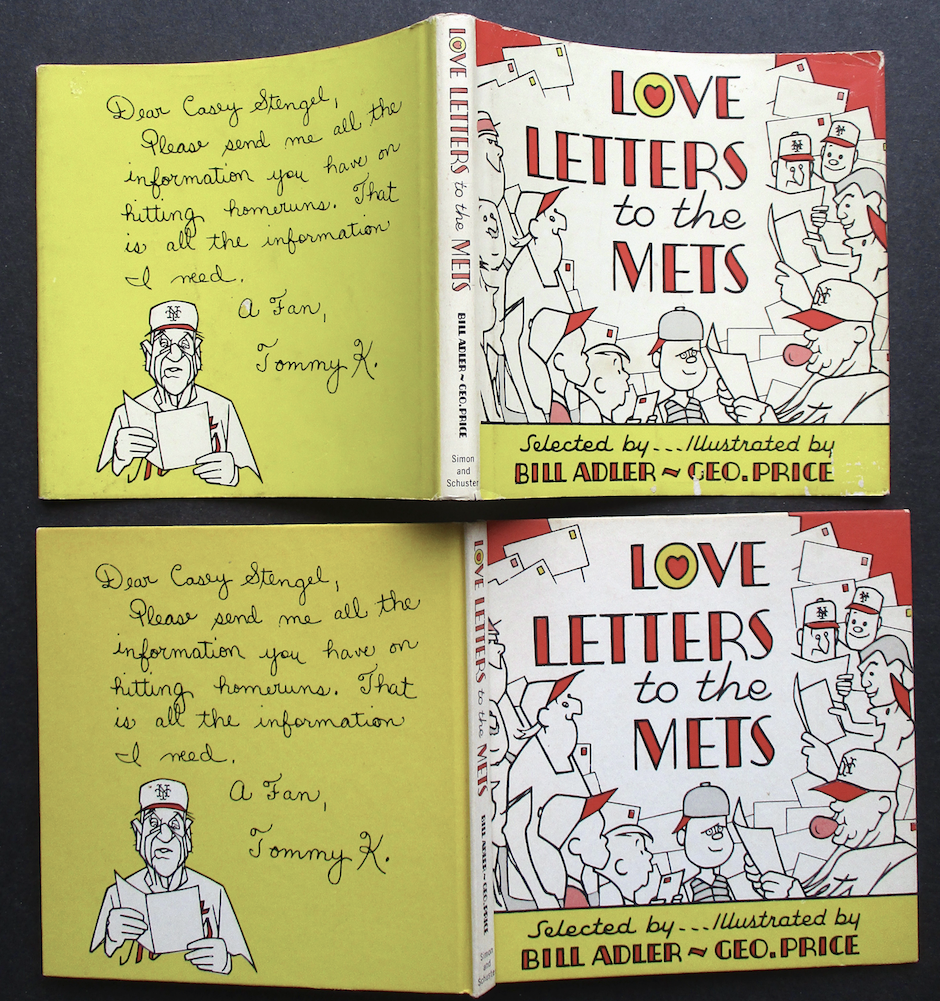 Dear Casey Stengel,
Please send me all the
information you have on
hitting homeruns. That
is all the information
I need.
A Fan,
Tommy K.
NY
LOVE LETTERS to the METS
BILL ADLER~GEO.PRICE
Simon
and
Schuster
LOVE
LETTERS
to the
METS
NY
NY
NY
ets
Selected by...Illustrated by
BILL ADLER ~ GEO. PRICE
Dear Casey Stengel,
Please send me all the
information you have on
hitting homeruns. That
is all the information
I need.
A Fan,
Tommy K.
NY
LOVE LETTERS to the METS
BILL ADLER~GEO.PRICE
Simon
and
Schuster
LOVE
LETTERS
to the
METS
NY
NY
NY
ets
Selected by...Illustrated by
BILL ADLER ~ GEO. PRICE